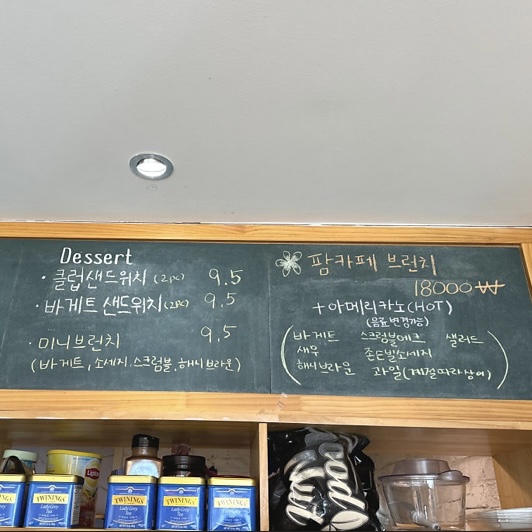 Dessert
· 클럽샌드위치 (2pc) 9.5
· 바게트 샌드위치 (2PC) 9.5
· 미니브런치 9.5
(바게트, 소세지, 스크럼블, 해시브라운)
팜카페 브런치
18000₩
+ 아메리카노(HOT)
(음료변경가능)
바게트 스크럼블에그 샐러드
새우 존슨빌소세지
해시브라운 과일(계절따라상이)
TWININGS
TWININGS
TWININGS
Lady Grey
Tea
TWININGS
Lady Grey
Tea
TWININGS
Lady Grey
Tea
Lipton